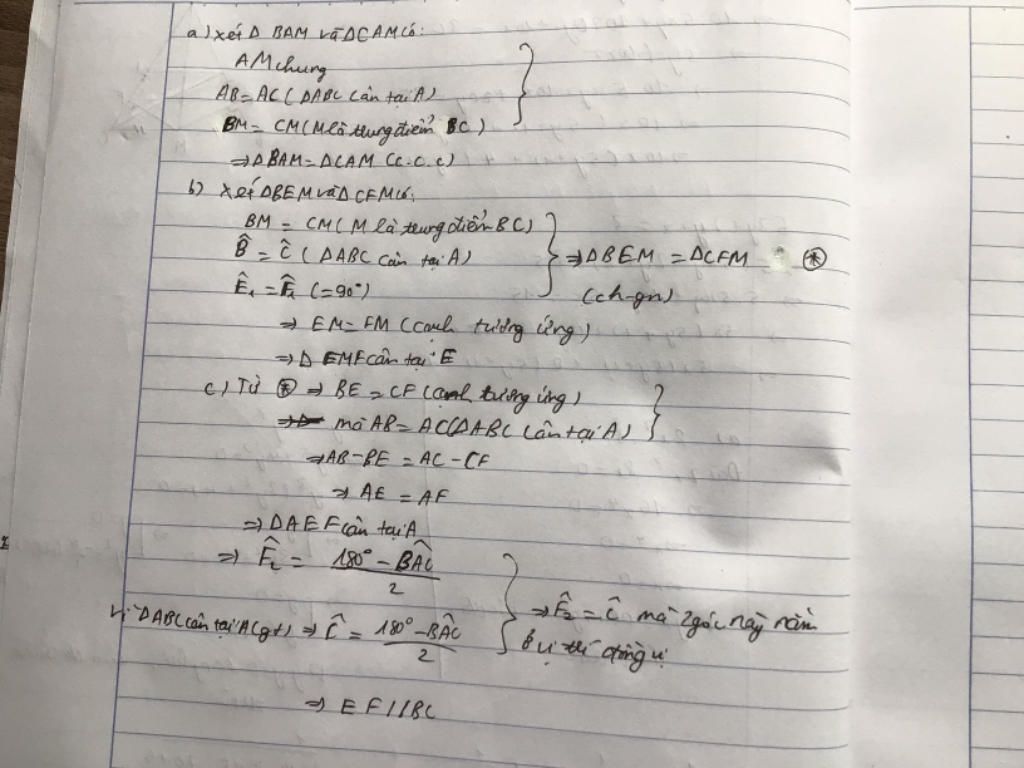 a) xét Δ BAM và ΔCAM có:
AM chung
AB = AC ( ΔABC cân tại A)
BM = CM (M là trung điểm BC)
⇒ ΔBAM = ΔCAM (c.c.c)
b) xét ΔBEM và ΔCFM có:
BM = CM ( M là trung điểm BC)
B̂ = Ĉ ( ΔABC cân tại A) ⇒ ΔBEM = ΔCFM ⊛
Ê₁ = F̂₁ (=90°) (ch-gn)
⇒ EM = FM (cạnh tương ứng)
⇒ Δ EMF cân tại E
c) Từ ⊛ ⇒ BE = CF (cạnh tương ứng)
mà AB = AC (ΔABC cân tại A)
⇒ AB - BE = AC - CF
⇒ AE = AF
⇒ ΔAEF cân tại A
⇒ F̂₂ = (180° - BÂC)/2
Vì ΔABC cân tại A (gt) ⇒ Ĉ = (180° - BÂC)/2 ⇒ F̂₂ = Ĉ mà 2 góc này nằm
ở vị trí đồng vị
⇒ EF // BC